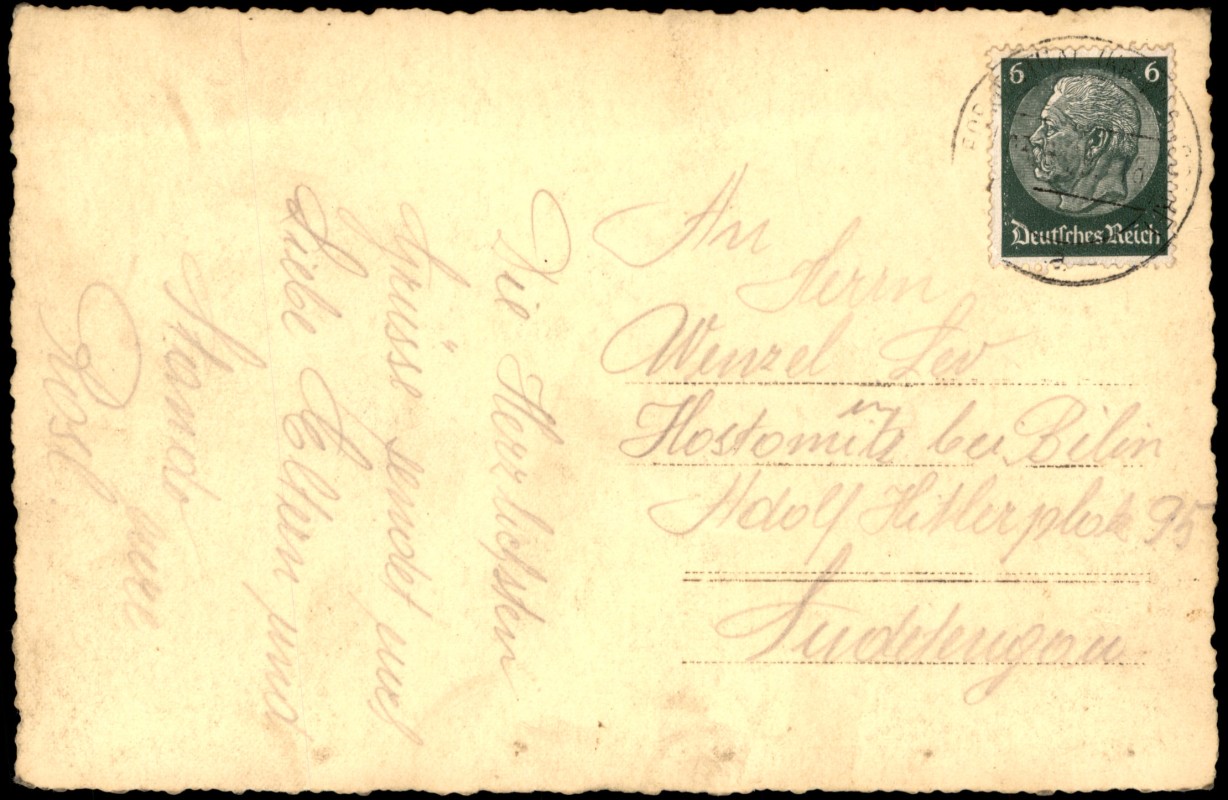 6 6
Deutsches Reich
An
Herrn
Wenzel Lev
Hostomitz bei Bilin
Adolf Hitlerplatz 95
Sudetengau
Die Herzlichsten
Grüsse sendet euch
Liebe Eltern und
eure
Rosl